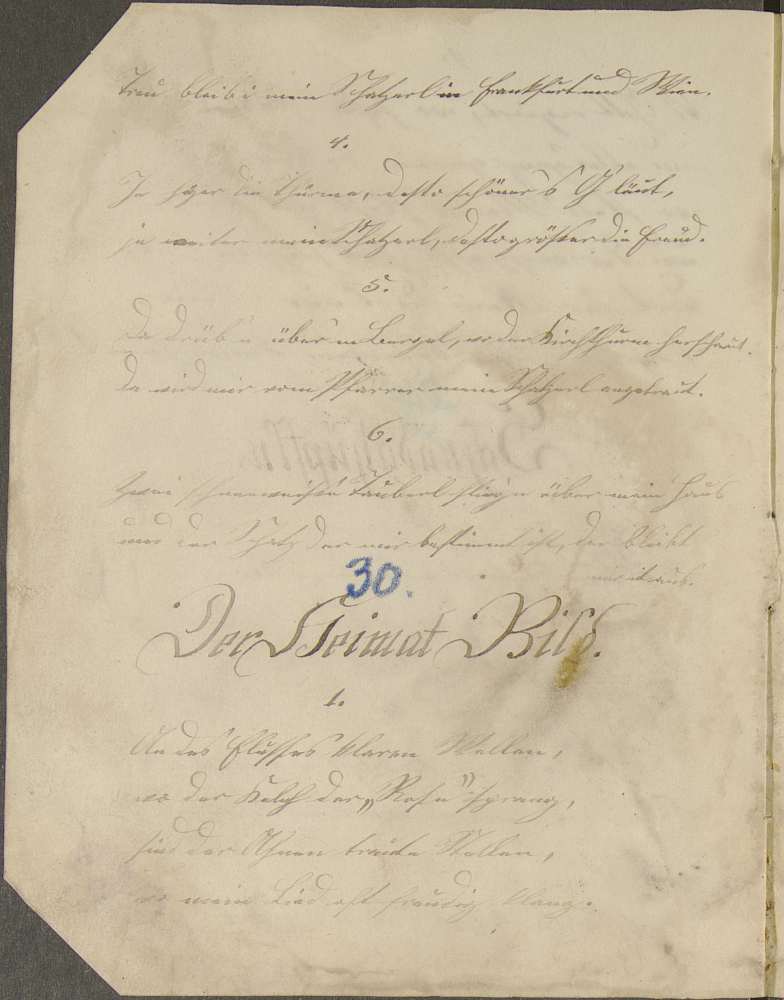 Treu bleibt mein Schatzerl in Frankfurt und Wien.
4.
Je höher die Thürme, desto schöner s G'läut,
je weiter mein Schatzerl, desto größer die Freud.
5.
Da drüb'n über'm Bergal, wo der Kirchthurm herschaut,
da wird mir vom Pfarrer mein Schatzerl angetraut.
6.
Zwei schneeweiße Tauberl fliegn über mein Haus
und der Schatz der mir bestimmt ist, der bleibt
mir nit aus.
30.
Der Heimat Bild.
1.
An des Flusses klaren Wellen,
wo der Kelch der „Rose" sprang,
sind der Ahnen traute Stellen,
wo mein Lied oft freudig klang.